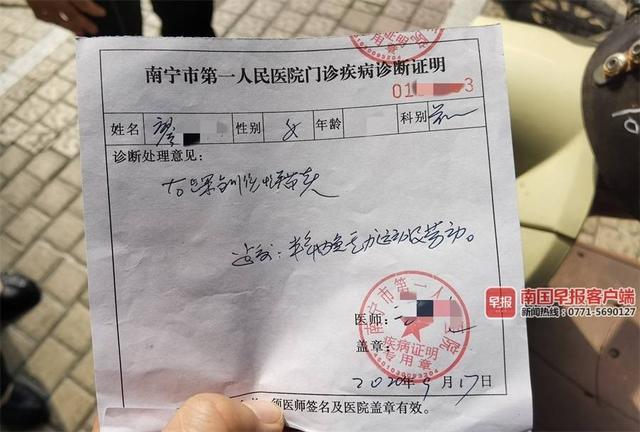 病证明
专用章
南宁市第一人民医院门诊疾病诊断证明
01 3
姓名 廖 性别 女 年龄 科别
诊断处理意见:
建议:半年内免重力运动及劳动。
早报 南国早报客户端
新闻热线:0771-5690127
南宁市第一人 院
疾病证明
专用章
医师:
盖章:
2020年9月17日
须医师签名及医院盖章有效。